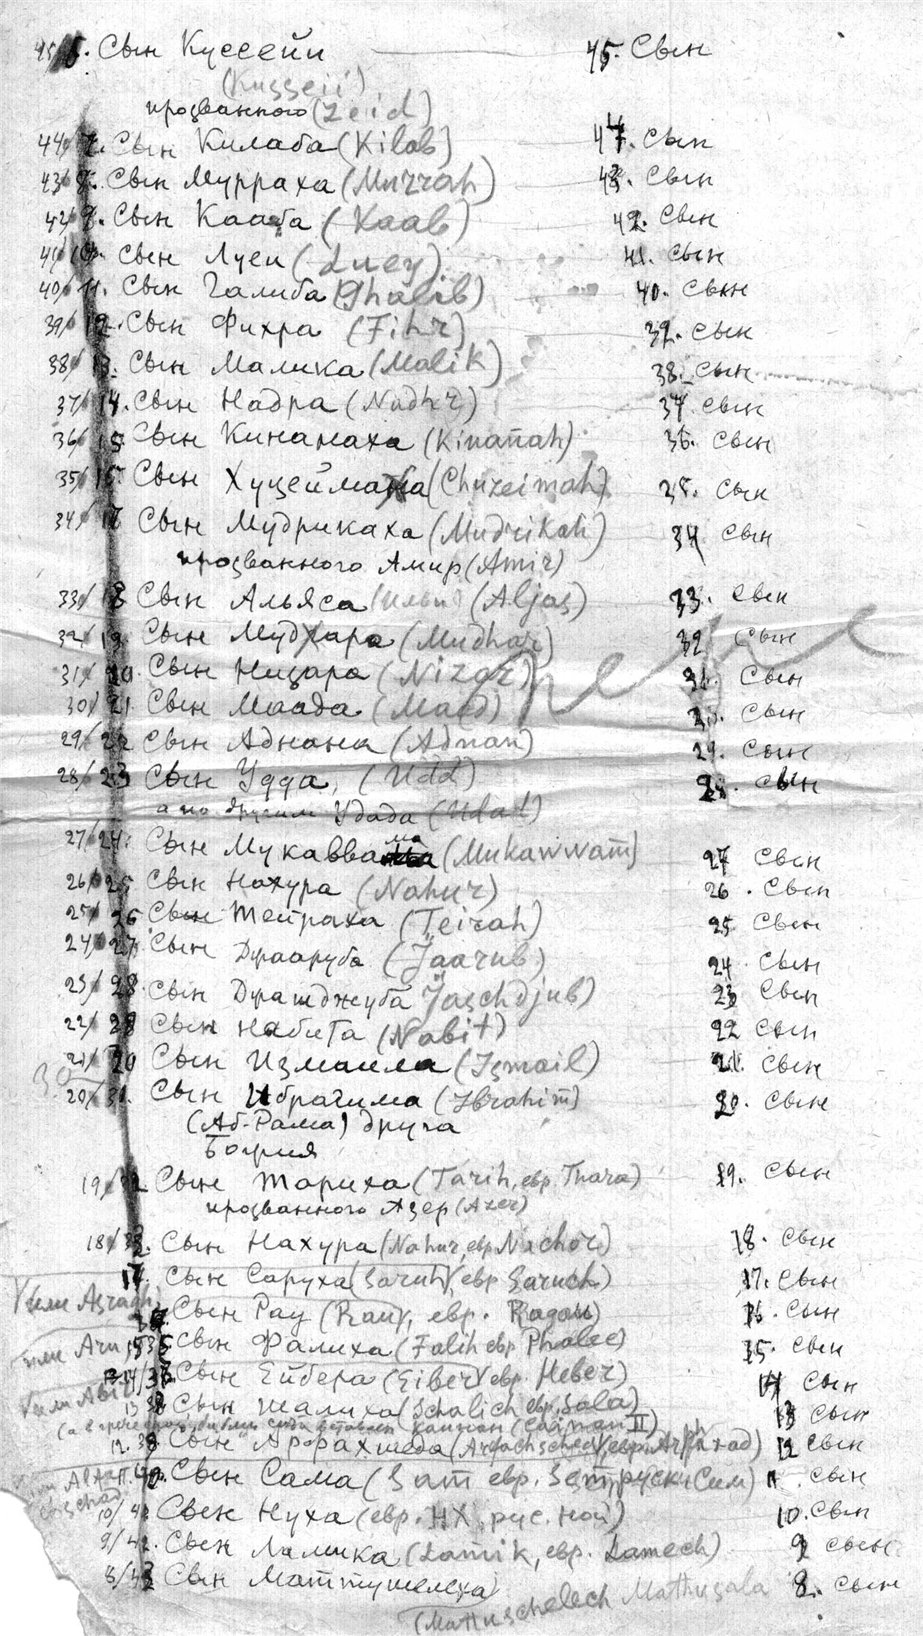 45. Сын Куссейи 45. Сын
(Kusseii)
прозванного (Zeid)
44/7. Сын Килаба (Kilab) 44. Сын
43/8. Сын Мурраха (Murrah) 43. Сын
42/9. Сын Кааба (Kaab) 42. Сын
41/10. Сын Луеи (Luey) 41. Сын
40/11. Сын Галиба (Ghalib) 40. Сын
39/12. Сын Фихра (Fihr) 39. Сын
38/13. Сын Малика (Malik) 38. Сын
37/14. Сын Надра (Nadhr) 37. Сын
36/15. Сын Кинанаха (Kinanah) 36. Сын
35/16. Сын Хуцеймаха (Chuzeimah) 35. Сын
34/17 Сын Мудрикаха (Mudrikah) 34 Сын
прозванного Амир (Amir)
33/18 Сын Альяса (Aljas) 33. Сын
32/19. Сын Мудхара (Mudhar) 32 Сын
31/20. Сын Низара (Nizar) 31. Сын
30/21 Сын Маада (Maad) 30. Сын
29/22 Сын Аднана (Adnan) 29. Сын
28/23 Сын Удда, (Udd) 28. Сын
а по другим Удада (Udad)
27/24. Сын Мукаввама (Mukawwam) 27 Сын
26/25 Сын Нахура (Nahur) 26. Сын
25/26 Сын Тейраха (Teirah) 25 Сын
24/27. Сын Джааруба (Jaarub) 24 Сын
23/28. Сын Джашджуба (Jaschdjub) 23 Сын
22/29 Сын Набита (Nabit) 22 Сын
21/30 Сын Измаила (Ismail) 21. Сын
20/31. Сын Ибрагима (Ibrahim) 20. Сын
(Аб-Рама) друга
Божия
19/32 Сын Тариха (Tarih, евр. Thara) 19. Сын
прозванного Азер (Azer)
18/33. Сын Нахура (Nahur, евр Nachor) 18. Сын
17. Сын Саруха (Saruh, евр Saruch) 17. Сын
или Asragh
Сын Рау (Rau, евр. Ragau) 16. Сын
15 Сын Фалиха (Falih евр Phalec) 15. Сын
14/ Сын Ейбера (Eiber евр. Heber) 14 Сын
13 Сын Шалиха (Schalich евр. Sala) 13 Сын
(а в греческой библии сюда вставлен Каинан (Cainan II)
12. Сын Арфахшеда (Arfachsched евр. Arphaxad) 12 Сын
Сын Сама (Sam евр. Sem, русски Сим) 11. Сын
10/41 Сын Нуха (евр. НХ, рус. Ной) 10. Сын
9/42. Сын Ламика (Lamik, евр. Lamech) 9 Сын
8/43 Сын Маттушелеха 8. Сын
(Mattuschelech Mathusala